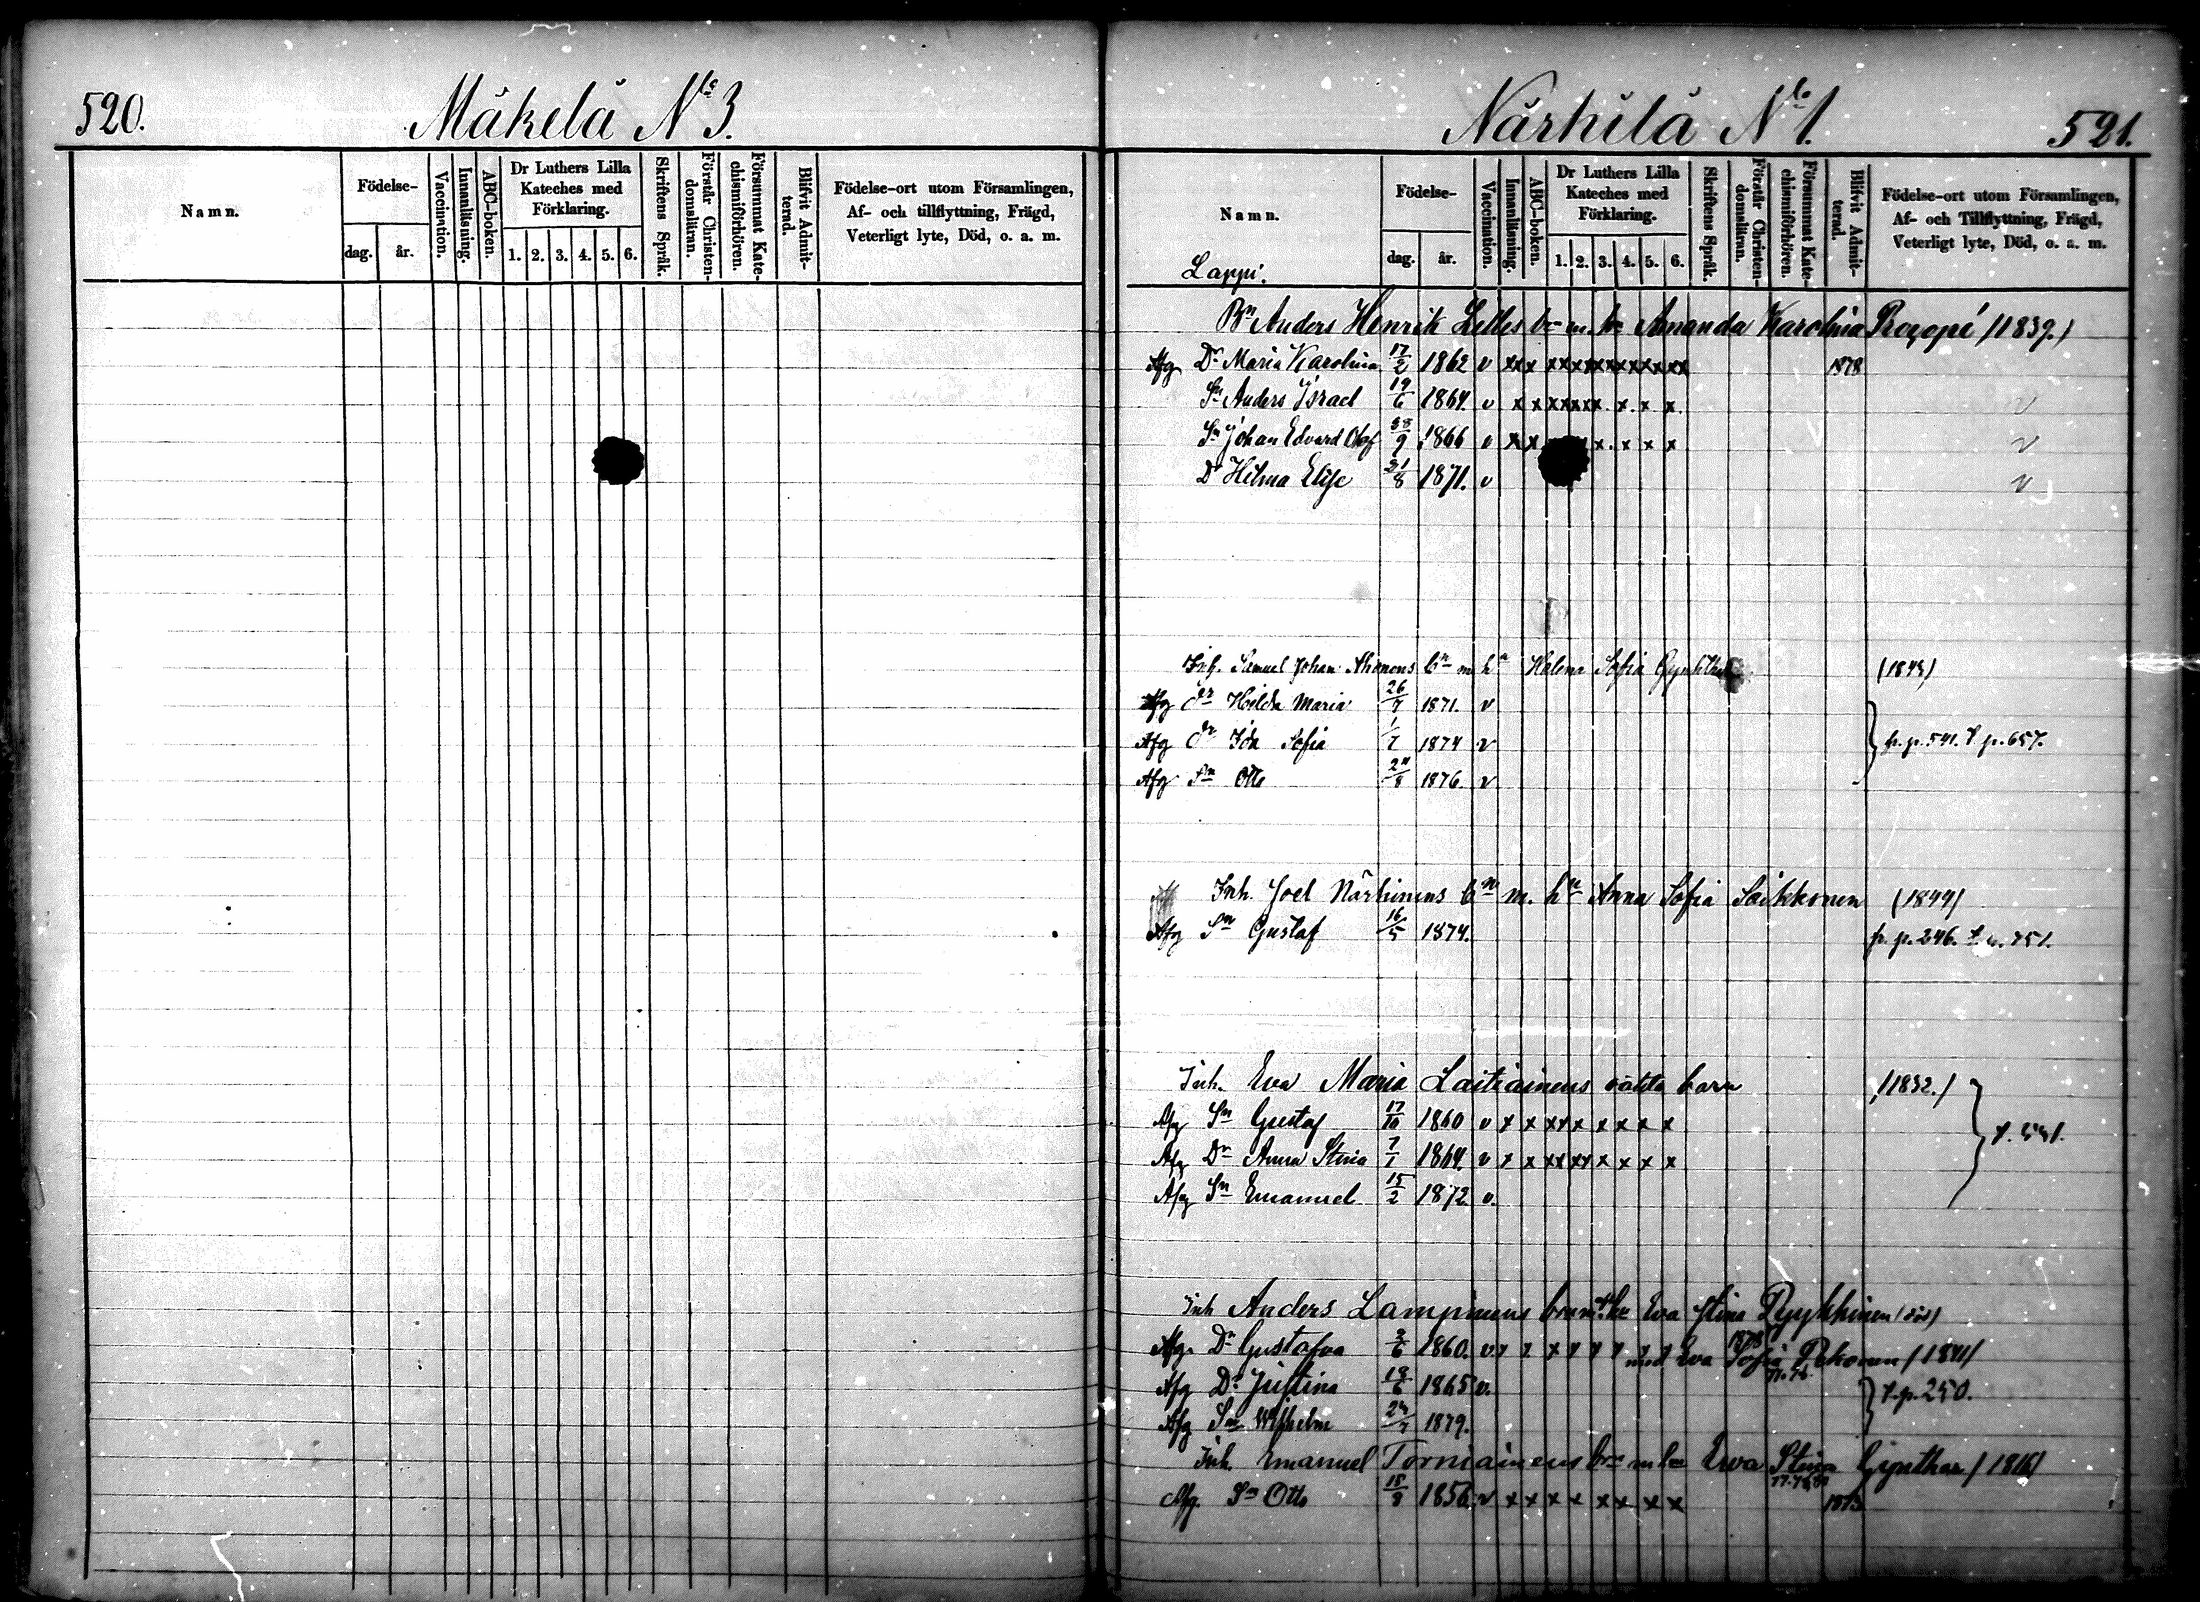 520.
Mäkelä N:o 3.
Namn.
Födelse-
dag.
år.
Vaccination.
Innanläsning.
ABC-boken.
Dr Luthers Lilla Kateches med Förklaring.
1. 2. 3. 4. 5. 6.
Skriftens Språk.
Förstår Christendomsläran.
Försummat Katechismiförhören.
Blifvit Admitterad.
Födelse-ort utom Församlingen,
Af- och tillflyttning, Frägd,
Veterligt lyte, Död, o. a. m.
Närhilä N:o 1.
521.
Namn.
Födelse-
dag.
år.
Vaccination.
Innanläsning.
ABC-boken.
Dr Luthers Lilla Kateches med Förklaring.
1. 2. 3. 4. 5. 6.
Skriftens Språk.
Förstår Christendomsläran.
Försummat Katechismiförhören.
Blifvit Admitterad.
Födelse-ort utom Församlingen,
Af- och Tillflyttning, Frägd,
Veterligt lyte, Död, o. a. m.
Lappi.
Bn Anders Henrik Lelles bn m. hu Amanda Karolina (1839.)
Afg Dr Maria Karolina 17/2 1862 v xxx xxxxxxxxxxxx 1878
Sn Anders Israel 19/6 1864. v x x xxxxx. x. x x v
Sn Johan Edvard Olof 28/9 1866 v x x x. x x x v
Dr Hilma Elise 21/8 1871. v v
Inh. Samuel Johan Ahonens bn m hu Helena Sofia (1843)
Afg dr Hilda Maria 26/7 1871. v
Afg dr Ida Sofia 1/7 1874 v fr. p. 541. t p. 657.
Afg Sn Otto 24/8 1876. v
Inh. Joel Närhinens bn m. hu Anna Sofia Soikkonen (1844)
Afg Sn Gustaf 16/5 1874. fr. p. 246. t. p. 751.
Inh. Eva Maria Laitiainens oäkta barn (1832.)
Afg Sn Gustaf 17/10 1860 v x x xxx x x x x
Afg Dr Anna Stina 7/1 1864. v x x xxxx x x x
Afg Sn Emanuel 15/2 1872 v.
Inh Anders Lampinens barn m. hu Eva Stina Pyykkinen (död)
Afg. Dr Gustafva 2/6 1860. v x x x x x x med Eva Sofia Pekonen (1841)
1878
77. 78
Afg Dr Justina 19/6 1865 v. t. p. 250.
Afg Sn Wilhelm 1879.
Inh. Emanuel Torniainens bn m hu Eva Stina (1816)
Afg. Sn Otto 18/8 1856. v x x x x x x x x